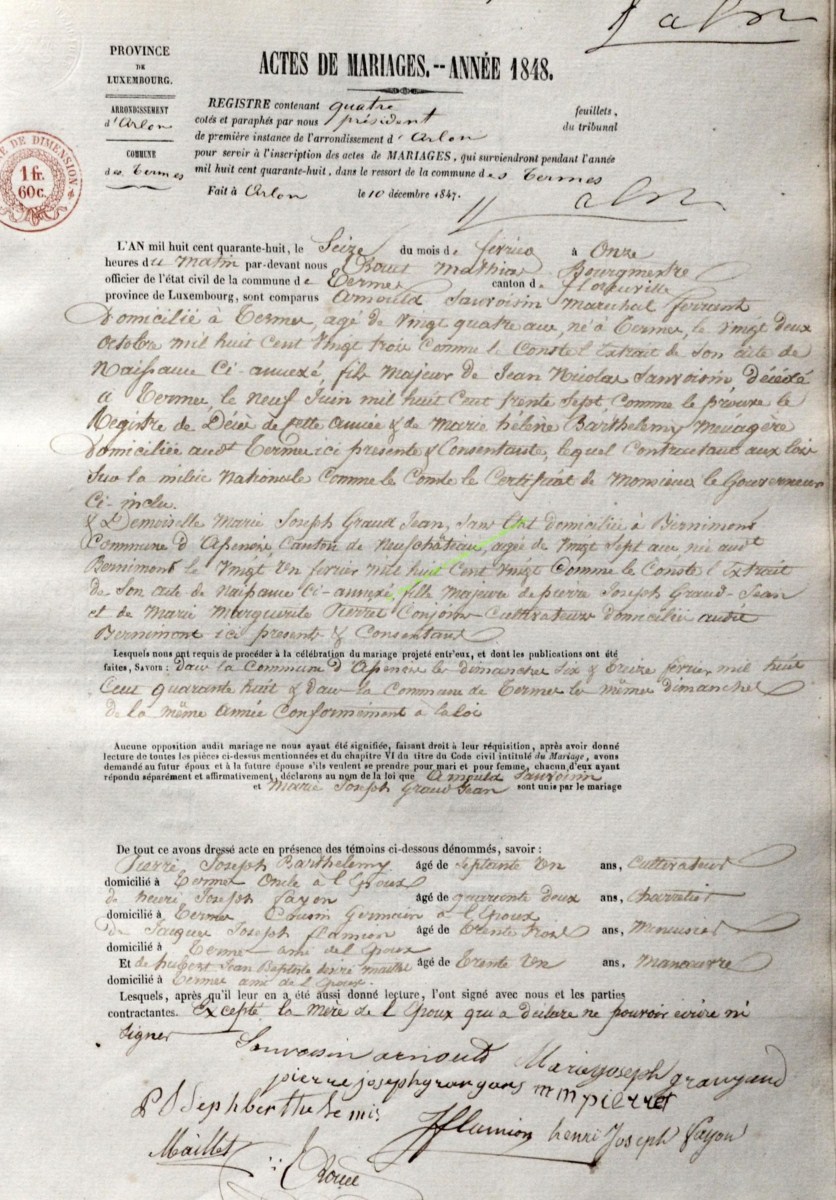 PROVINCE
DE
LUXEMBOURG.
ARRONDISSEMENT
d'Arlon
COMMUNE
des Termes
DE DIMENSION
1 fr.
60c.
ACTES DE MARIAGES.--ANNÉE 1848.
REGISTRE contenant quatre feuillets,
cotés et paraphés par nous président du tribunal
de première instance de l'arrondissement d'Arlon
pour servir à l'inscription des actes de MARIAGES, qui surviendront pendant l'année
mil huit cent quarante-huit, dans le ressort de la commune des Termes
Fait à Arlon le 10 décembre 1847.
L'AN mil huit cent quarante-huit, le Seize du mois de février à Onze
heures du matin par-devant nous Mathieu Bourgmestre
officier de l'état civil de la commune de Termes canton de florenville
province de Luxembourg, sont comparus Arnould Sauvoisin Marechal ferrant
Domicilié à Termes, agé de vingt quatre ans, né à Termes, le vingt deux
octobre mil huit Cent vingt trois comme le Conste l'Extrait de Son acte de
Naissance Ci-annexé, fils majeur de Jean Nicolas Sauvoisin, décédé
a Termes le neuf Juin mil huit Cent trente Sept comme le prouve le
Registre de Décès de cette année & de marie hélène Barthelemy Menagère
Domiciliée audt Termes ici presente & Consentante, lequel Contractant aux lois
Sur la milice Nationale Comme le Conste le Certificat de Monsieur le Gouverneur
Ci-inclu.
& Demoiselle Marie Joseph Grand Jean, Sans Etat domiciliée à Bernimont
Commune d'Assenois, Canton de Neufchâteau, agée de vingt Sept ans, née audt
Bernimont le vingt Un fevrier mil huit Cent vingt Comme le Conste l'Extrait
de Son acte de naissance Ci-annexé, fille majeure de pierre Joseph Grand-Jean
et de Marie Marguerite Pierret Conjoints Cultivateurs domiciliés audit
Bernimont ici presents & Consentans
Lesquels nous ont requis de procéder à la célébration du mariage projeté entr'eux, et dont les publications ont été
faites, SAVOIR : dans la Commune d'Assenois les dimanches Six & treize février mil huit
Cent quarante huit & dans la Commune de Termes les mêmes dimanches
de la même année Conformément à la loi
Aucune opposition audit mariage ne nous ayant été signifiée, faisant droit à leur réquisition, après avoir donné
lecture de toutes les pièces ci-dessus mentionnées et du chapitre VI du titre du Code civil intitulé du Mariage, avons
demandé au futur époux et à la future épouse s'ils veulent se prendre pour mari et pour femme, chacun d'eux ayant
répondu séparément et affirmativement, déclarons au nom de la loi que Arnould Sauvoisin
et Marie Joseph Grand Jean sont unis par le mariage
De tout ce avons dressé acte en présence des témoins ci-dessous dénommés, savoir :
Pierre Joseph Barthelemy âgé de Septante Un ans, Cultivateur
domicilié à Termes Oncle à l'Epoux
de henri Joseph fayon âgé de quarante deux ans, Charretier
domicilié à Termes Cousin Germain à l'Epoux
De Jaques Joseph flamion âgé de trente trois ans, Menuisier
domicilié à Termes ami de l'Epoux
Et de hubert Jean Baptiste Maillet âgé de trente Un ans, Manoeuvre
domicilié à Termes ami de l'Epoux.
Lesquels, après qu'il leur en a été aussi donné lecture, l'ont signé avec nous et les parties
contractantes. Excepté la mère de l'Epoux qui a déclaré ne pouvoir écrire ni
Signer
Sauvoisin arnould Marie joseph granjand
pierre joseph granjans m m pierret
JJflamion henri Joseph fayon
Maillet